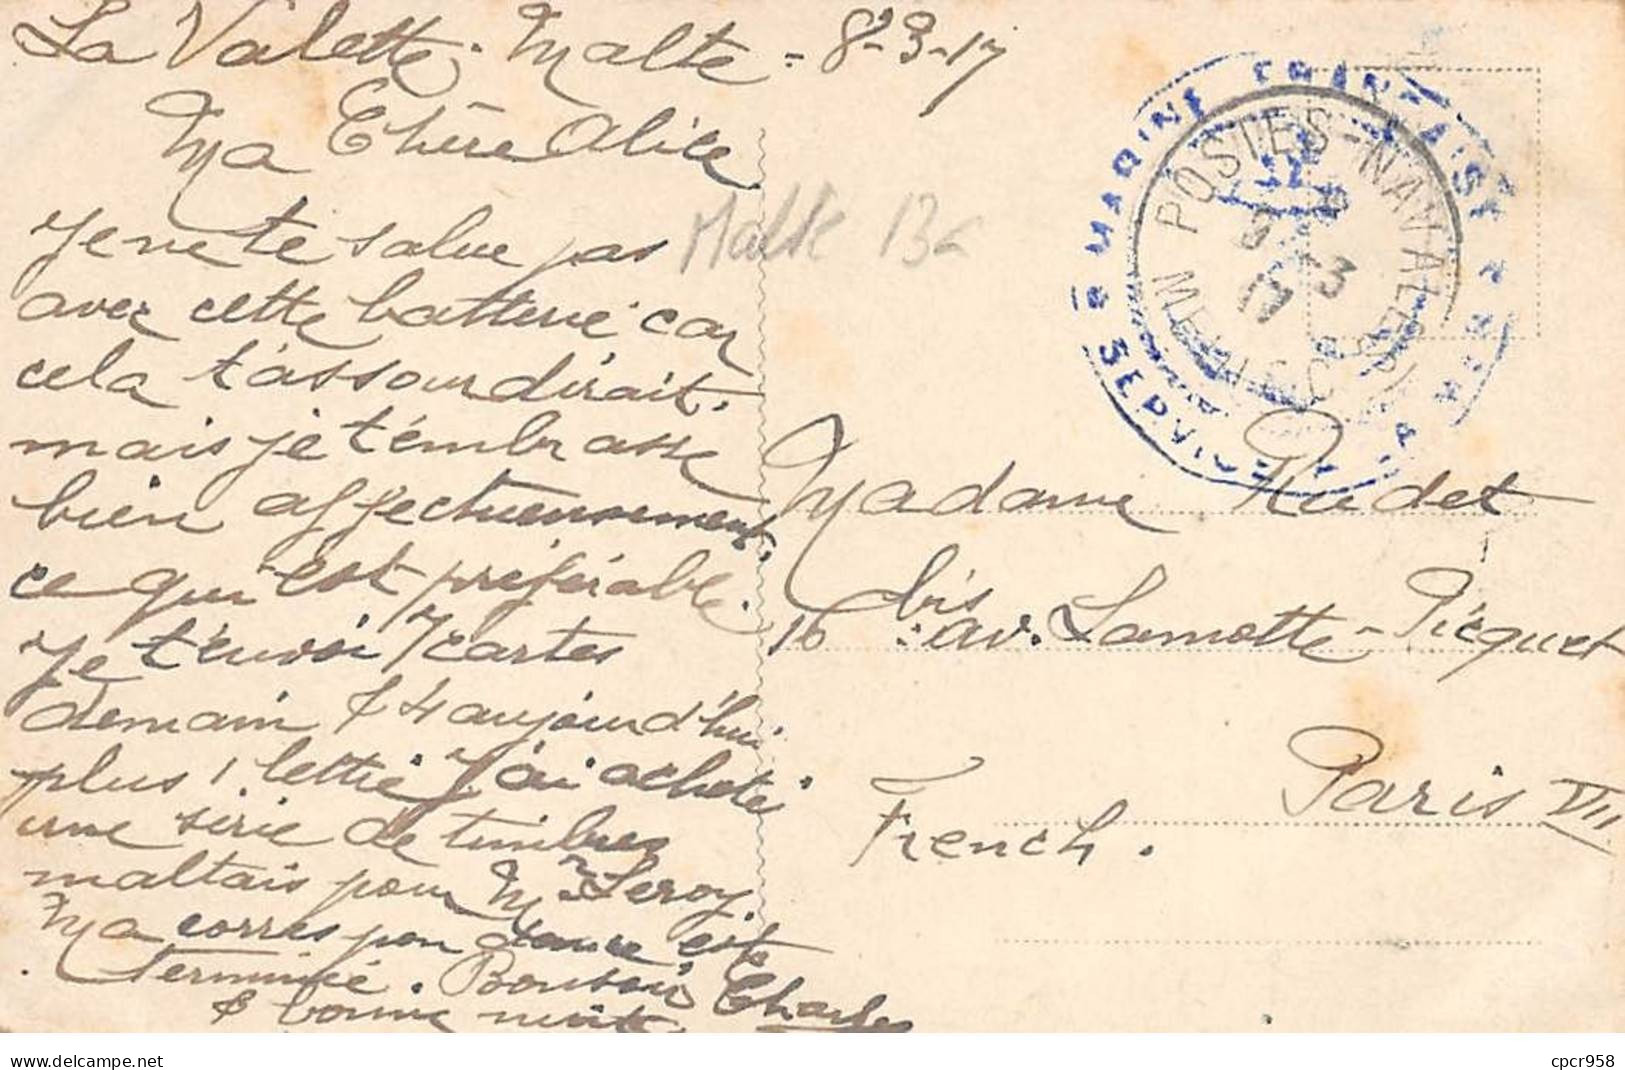 La Valette. Malte - 8-3-17
Ma Chère Alice
Je ne te salue pas
avec cette batterie car
cela t'assourdirait,
mais je t'embrasse
bien affectueusement,
ce qui est préférable.
Je t'envoi 7 cartes
demain & 4 aujourd'hui
plus 1 lettre J'ai acheté
une série de timbres
maltais pour Mr Leroy.
Ma correspondance est
terminée. Bonsoir Charles
& bonne nuit
Malte 13
MARINE FRANÇAISE
SERVICE A LA MER
POSTES NAVALES
8 -3
17
Madame Radet
16 bis av. Lamotte-Picquet
Paris VII
French.
cpcr958